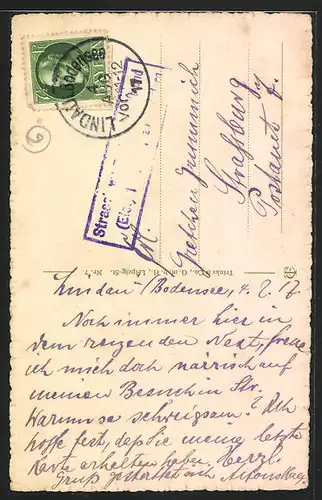 LINDAU (Bodensee)
VORM. 11-12
Strassb
(Els.)
Frl.
Gretchen
Strassburg
Postamt
Trinks & Co., G. m. b. H., Leipzig-St. Nr. 7
Lindau-/Bodensee, 4. 2. 17
Noch immer hier in
dem reizenden Nest, freue
ich mich doch närrisch auf
meinen Besuch in Str.
Warum so schweigsam? Ich
hoffe fest, daß Sie meine letzte
Karte erhalten haben. Herzl.
Gruß gestattet sich